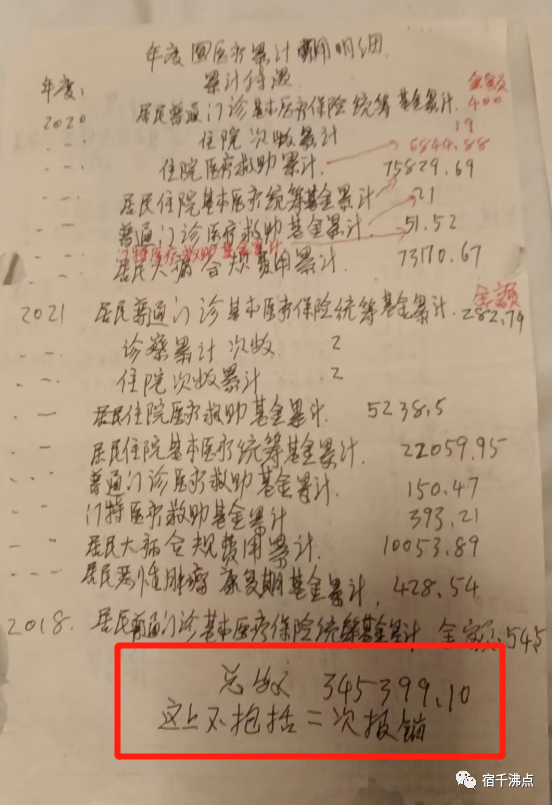 年度医疗累计费用明细
年度: 累计待遇 金额
2020 居民普通门诊基本医疗保险统筹基金累计. 400
住院次数累计 19
住院医疗救助累计. 6844.88
居民住院基本医疗统筹基金累计 75829.69
普通门诊医疗救助基金累计. 21
门特医疗救助基金累计 51.52
居民大病合规费用累计. 73170.67
金额
2021 居民普通门诊基本医疗保险统筹基金累计. 282.74
诊察累计次数 2
住院次数累计 2
居民住院医疗救助基金累计. 5238.5
居民住院基本医疗统筹基金累计. 22059.95
普通门诊医疗救助基金累计. 150.47
门特医疗救助基金累计 393.21
居民大病合规费用累计. 10053.89
居民恶性肿瘤康复期基金累计. 428.54
2018. 居民普通门诊基本医疗保险统筹基金累计, 金额:545
总数 345399.10
这上不抱括二次报销
宿千沸点